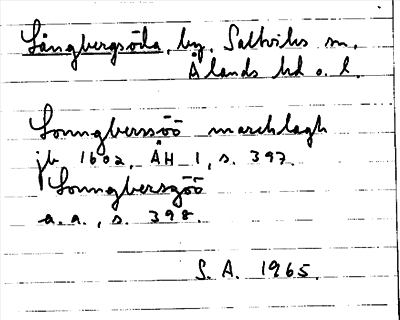 Långbergsöda, by, Saltviks sn,
Ålands hd o. l.
Lonngberssöö marchlagh
jb 1602, ÅH 1, s. 397.
Lonngberszöö
a.a., s. 398.
S. A. 1965.